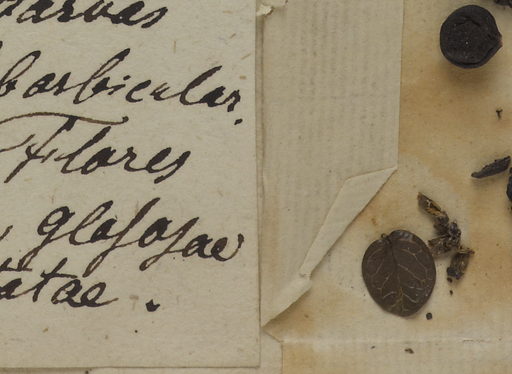 parvas
orbicular.
Flores
glososae
tatae.